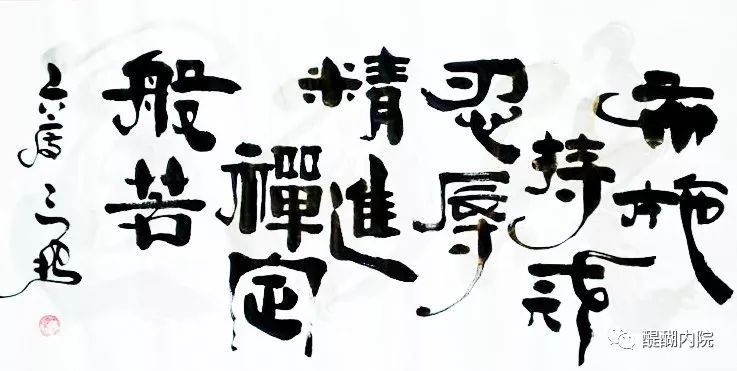 布施
持戒
忍辱
精進
禪定
般若
醍醐内院